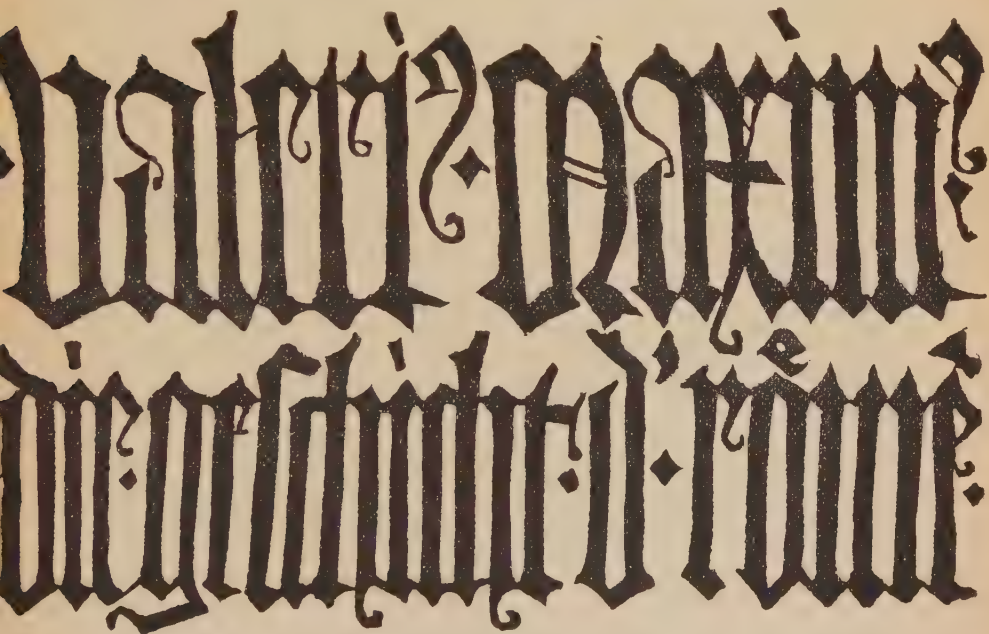 ·Valeriꝰ·Maximꝰ·
die·geschicht·d'·roͤmē·